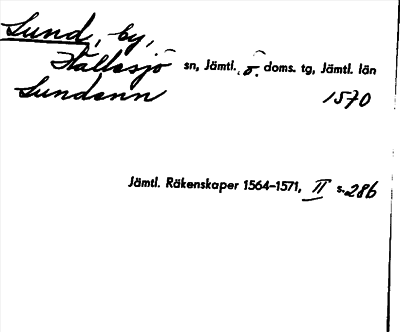 Lund, by,
Hällesjö sn, Jämtl. ö. doms. tg, Jämtl. län
Lundenn 1570
Jämtl. Räkenskaper 1564-1571, II s. 286